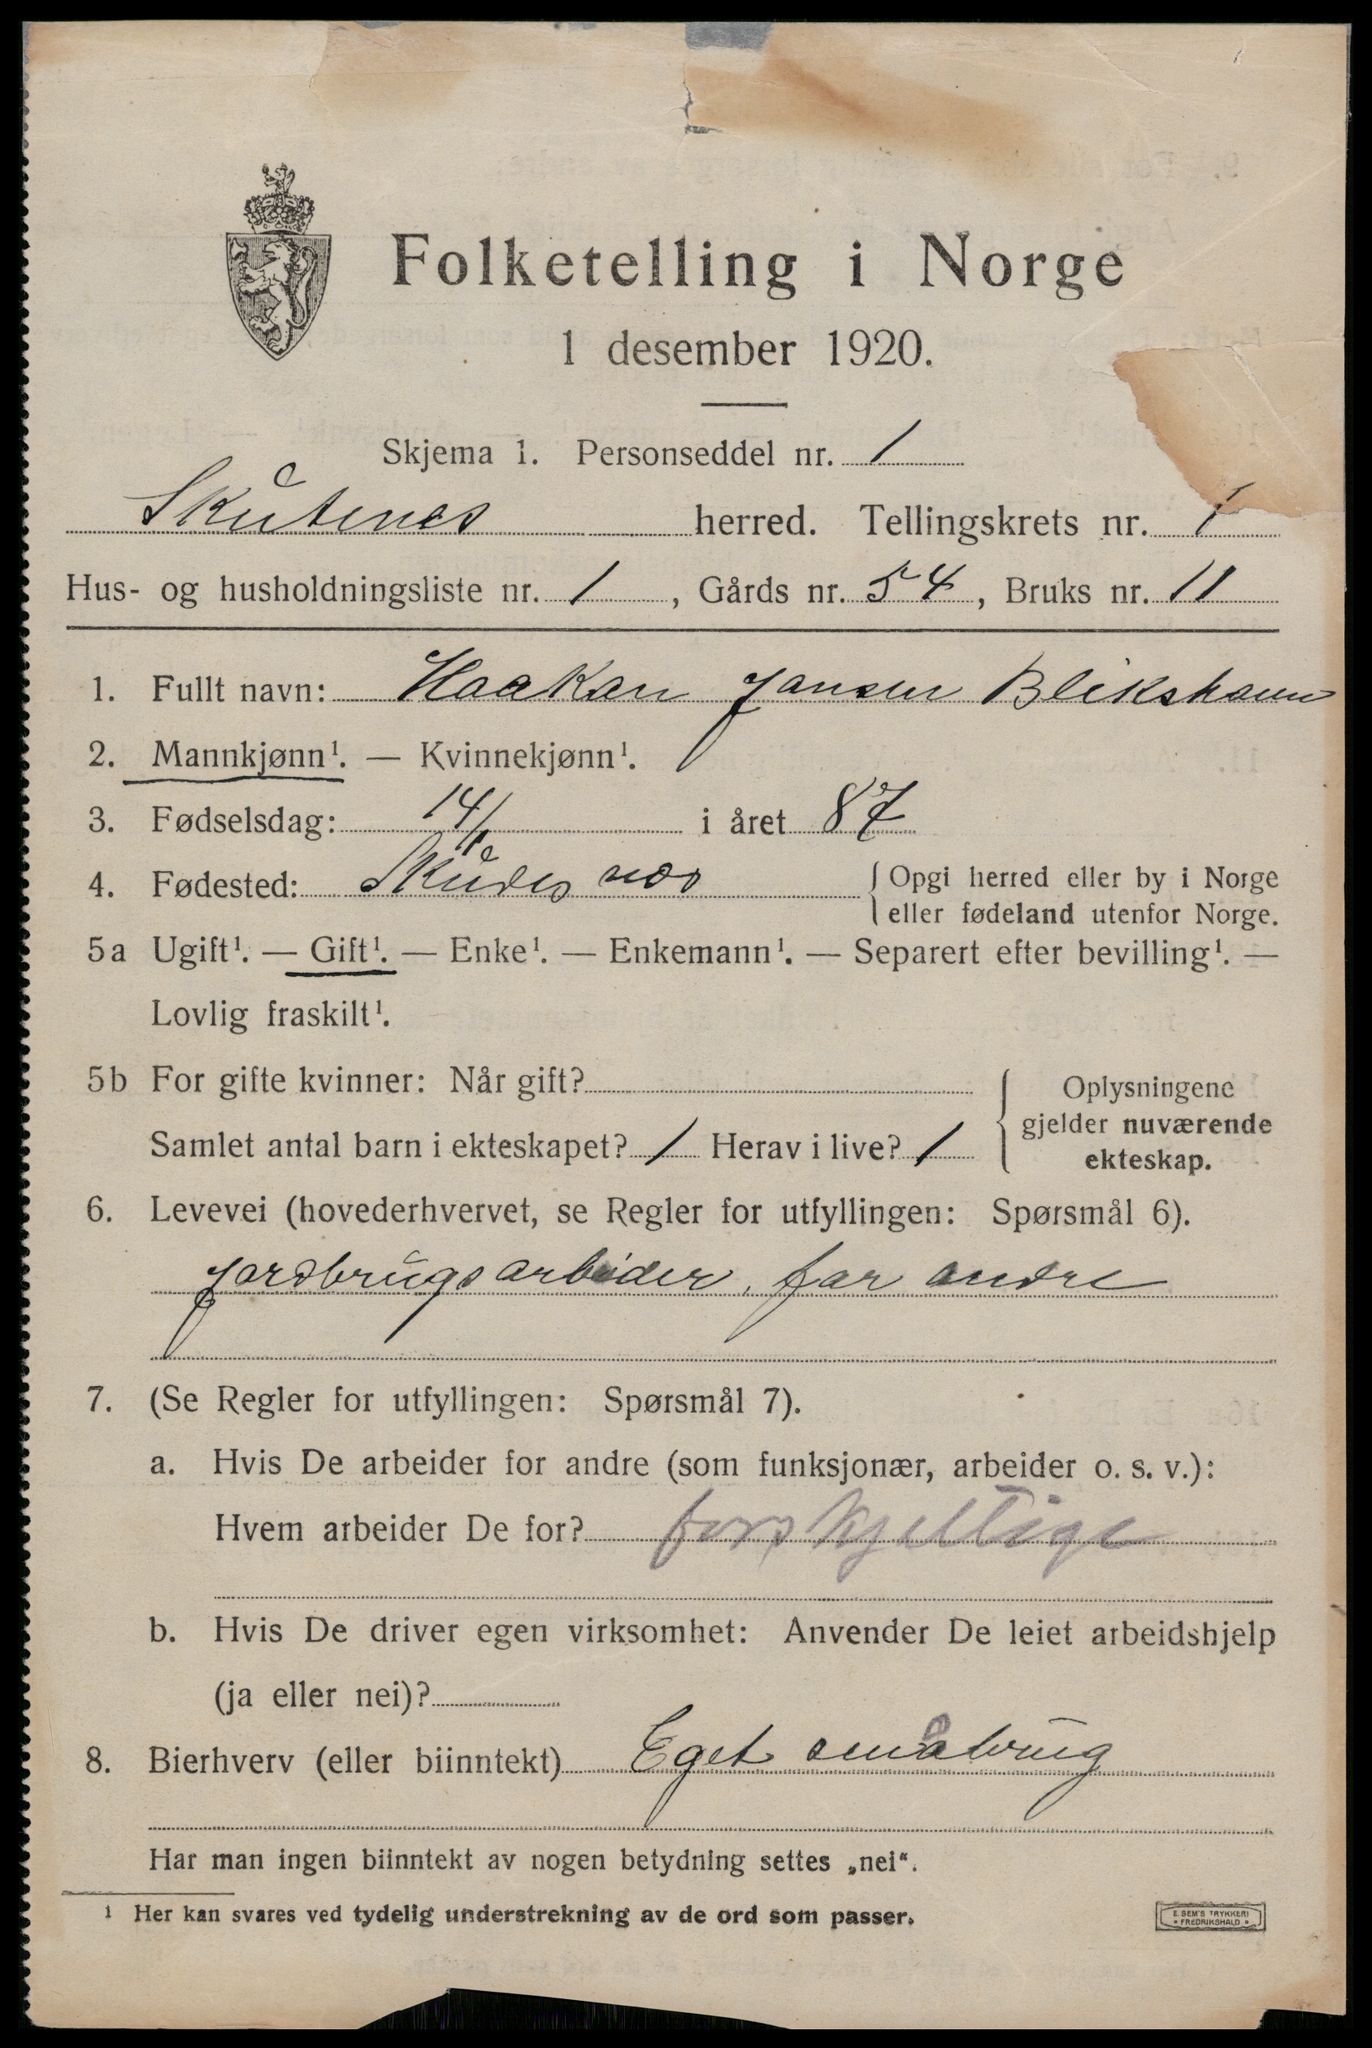 Folketelling i Norge
1 desember 1920.
Skjema 1. Personseddel nr. 1
Skutenes herred. Tellingskrets nr. 1
Hus- og husholdningsliste nr. 1, Gårds nr. 54, Bruks nr. 11
1. Fullt navn: Haakan Jansen Blikshavn
2. Mannkjønn¹. — Kvinnekjønn¹.
3. Fødselsdag: 14/1 i året 87
4. Fødested: Skudesnæs { Opgi herred eller by i Norge
eller fødeland utenfor Norge.
5a Ugift¹. — Gift¹. — Enke¹. — Enkemann¹. — Separert efter bevilling¹. —
Lovlig fraskilt¹.
5b For gifte kvinner: Når gift? { Oplysningene
gjelder nuværende
ekteskap.
Samlet antal barn i ekteskapet? 1 Herav i live? 1
6. Levevei (hovederhvervet, se Regler for utfyllingen: Spørsmål 6).
Jordbrugsarbeider, for andre
7. (Se Regler for utfyllingen: Spørsmål 7).
a. Hvis De arbeider for andre (som funksjonær, arbeider o. s. v.):
Hvem arbeider De for? forskjellige
b. Hvis De driver egen virksomhet: Anvender De leiet arbeidshjelp
(ja eller nei)?
8. Bierhverv (eller biinntekt) Eget småbrug
Har man ingen biinntekt av nogen betydning settes „nei“.
¹ Her kan svares ved tydelig understrekning av de ord som passer.
E. SEM'S TRYKKERI
* FREDRIKSHALD *